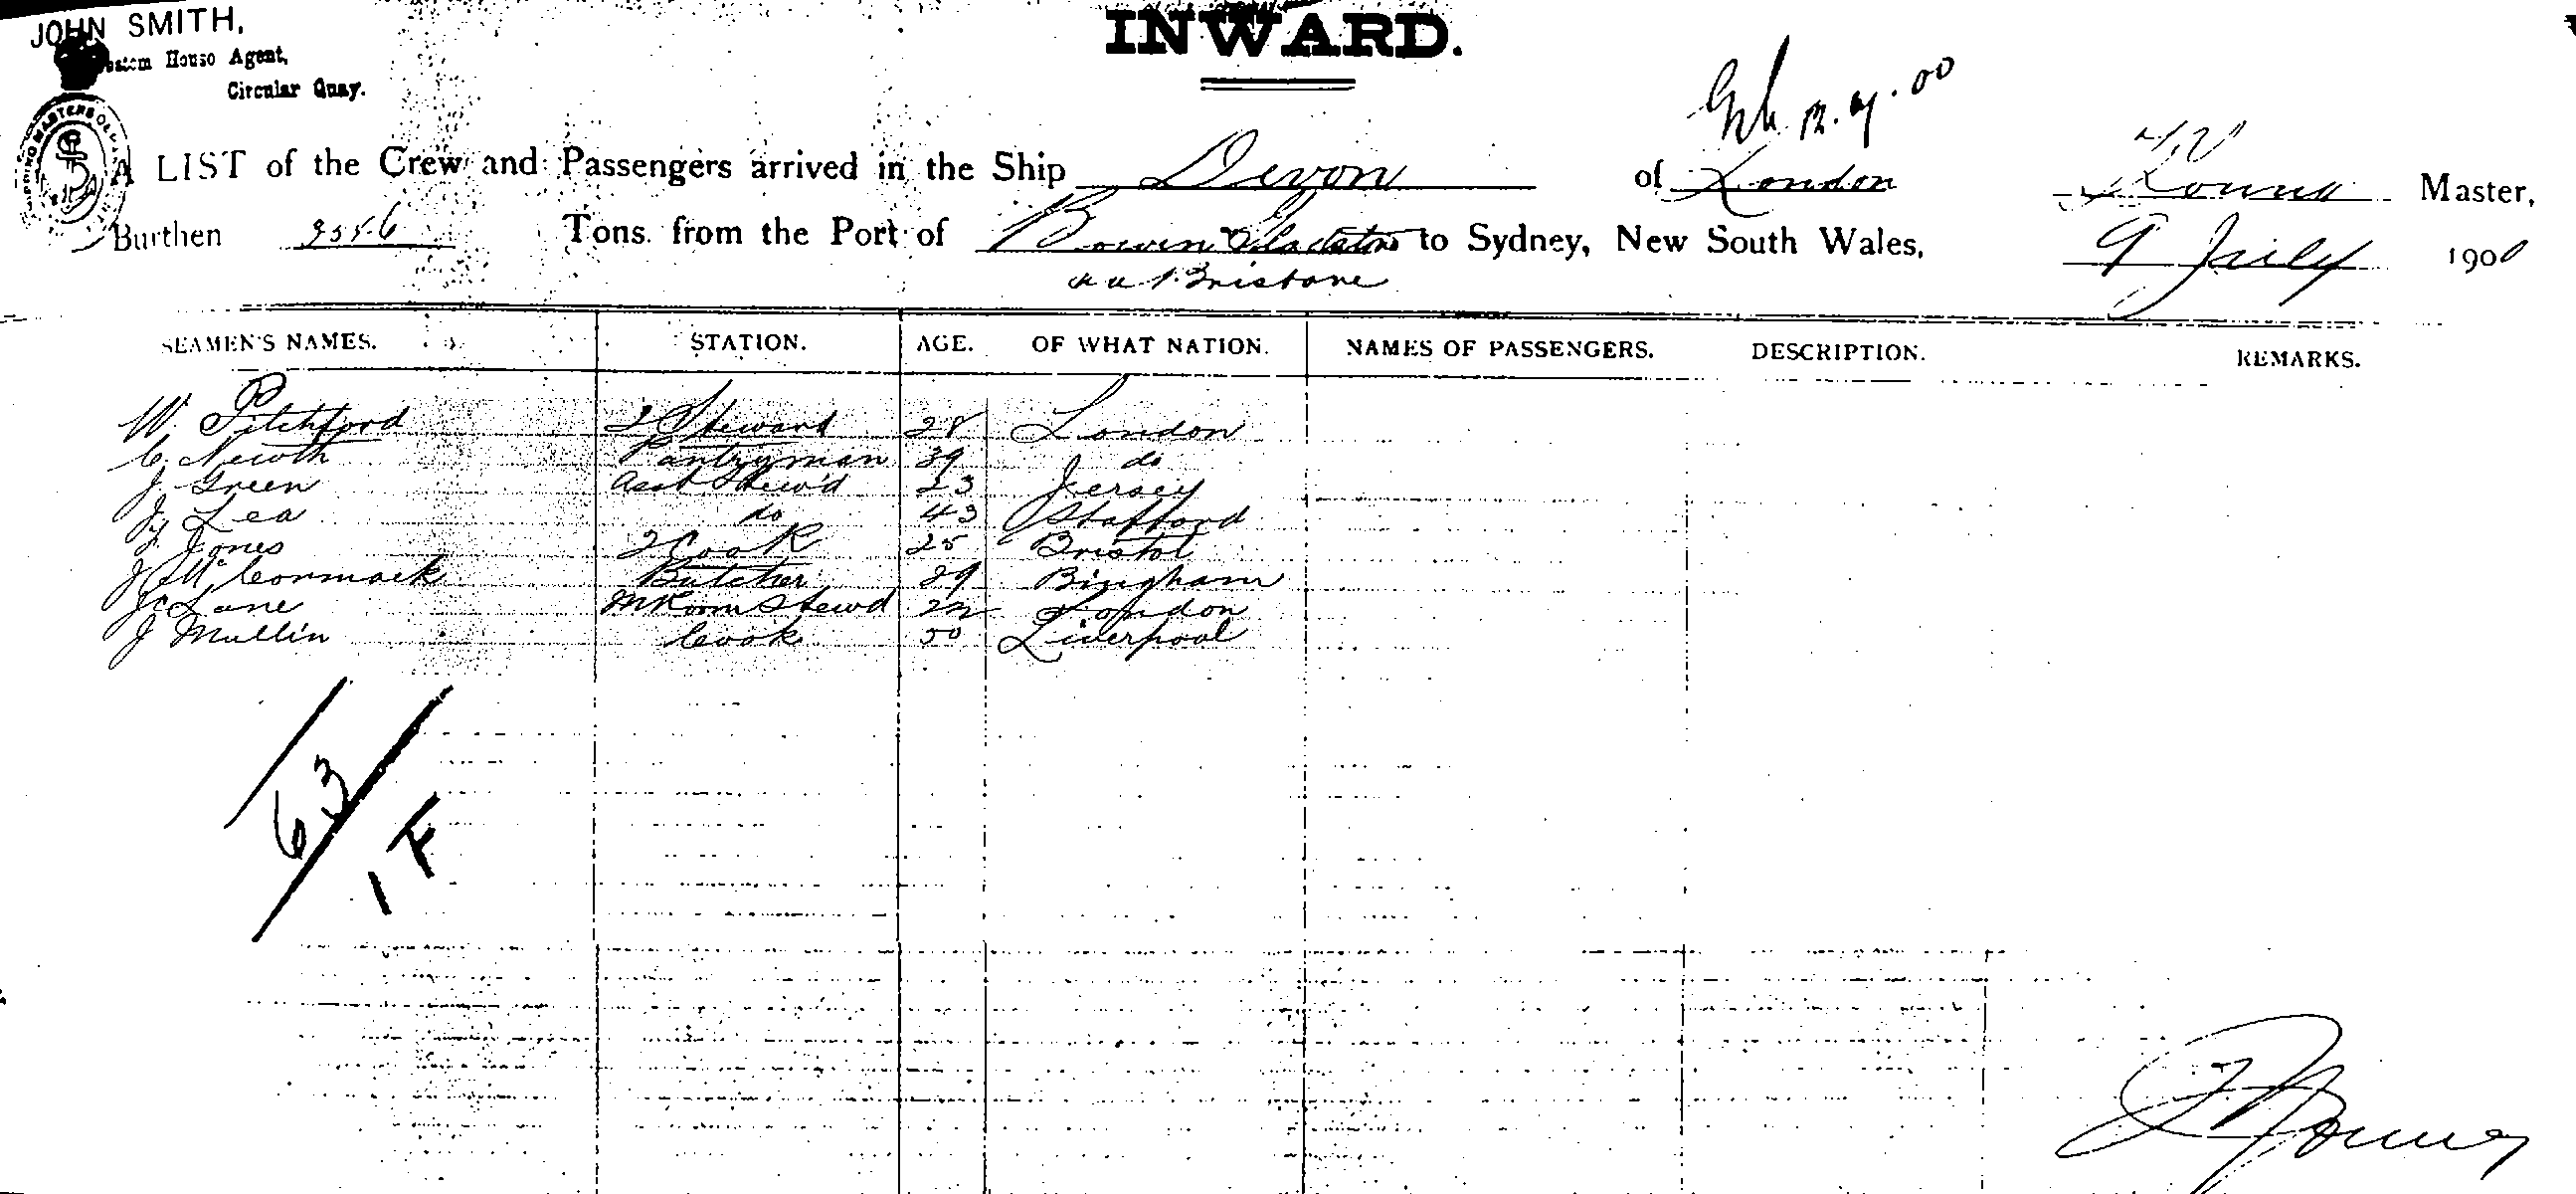 JOHN SMITH,
Custom House Agent,
Circular Quay.
INWARD.
A LIST of the Crew and Passengers arrived in the Ship Devon of London Master,
Burthen Tons from the Port of Bowen Gladstone to Sydney, New South Wales, 9 July 1900
Brisbane
SEAMEN'S NAMES. STATION. AGE. OF WHAT NATION. NAMES OF PASSENGERS. DESCRIPTION. REMARKS.
W. Pitchford 2 Steward 28 London
C. Newth Pantryman 39 do
J. Green Asst Stew'd 23 Jersey
J. Lea do 43 Stafford
Jones 2 Cook 25 Bristol
J McCormack Butcher 29 Bingham
Jc Lane M Room Stewd 22 London
J Mullin Cook 50 Liverpool
63
1 F